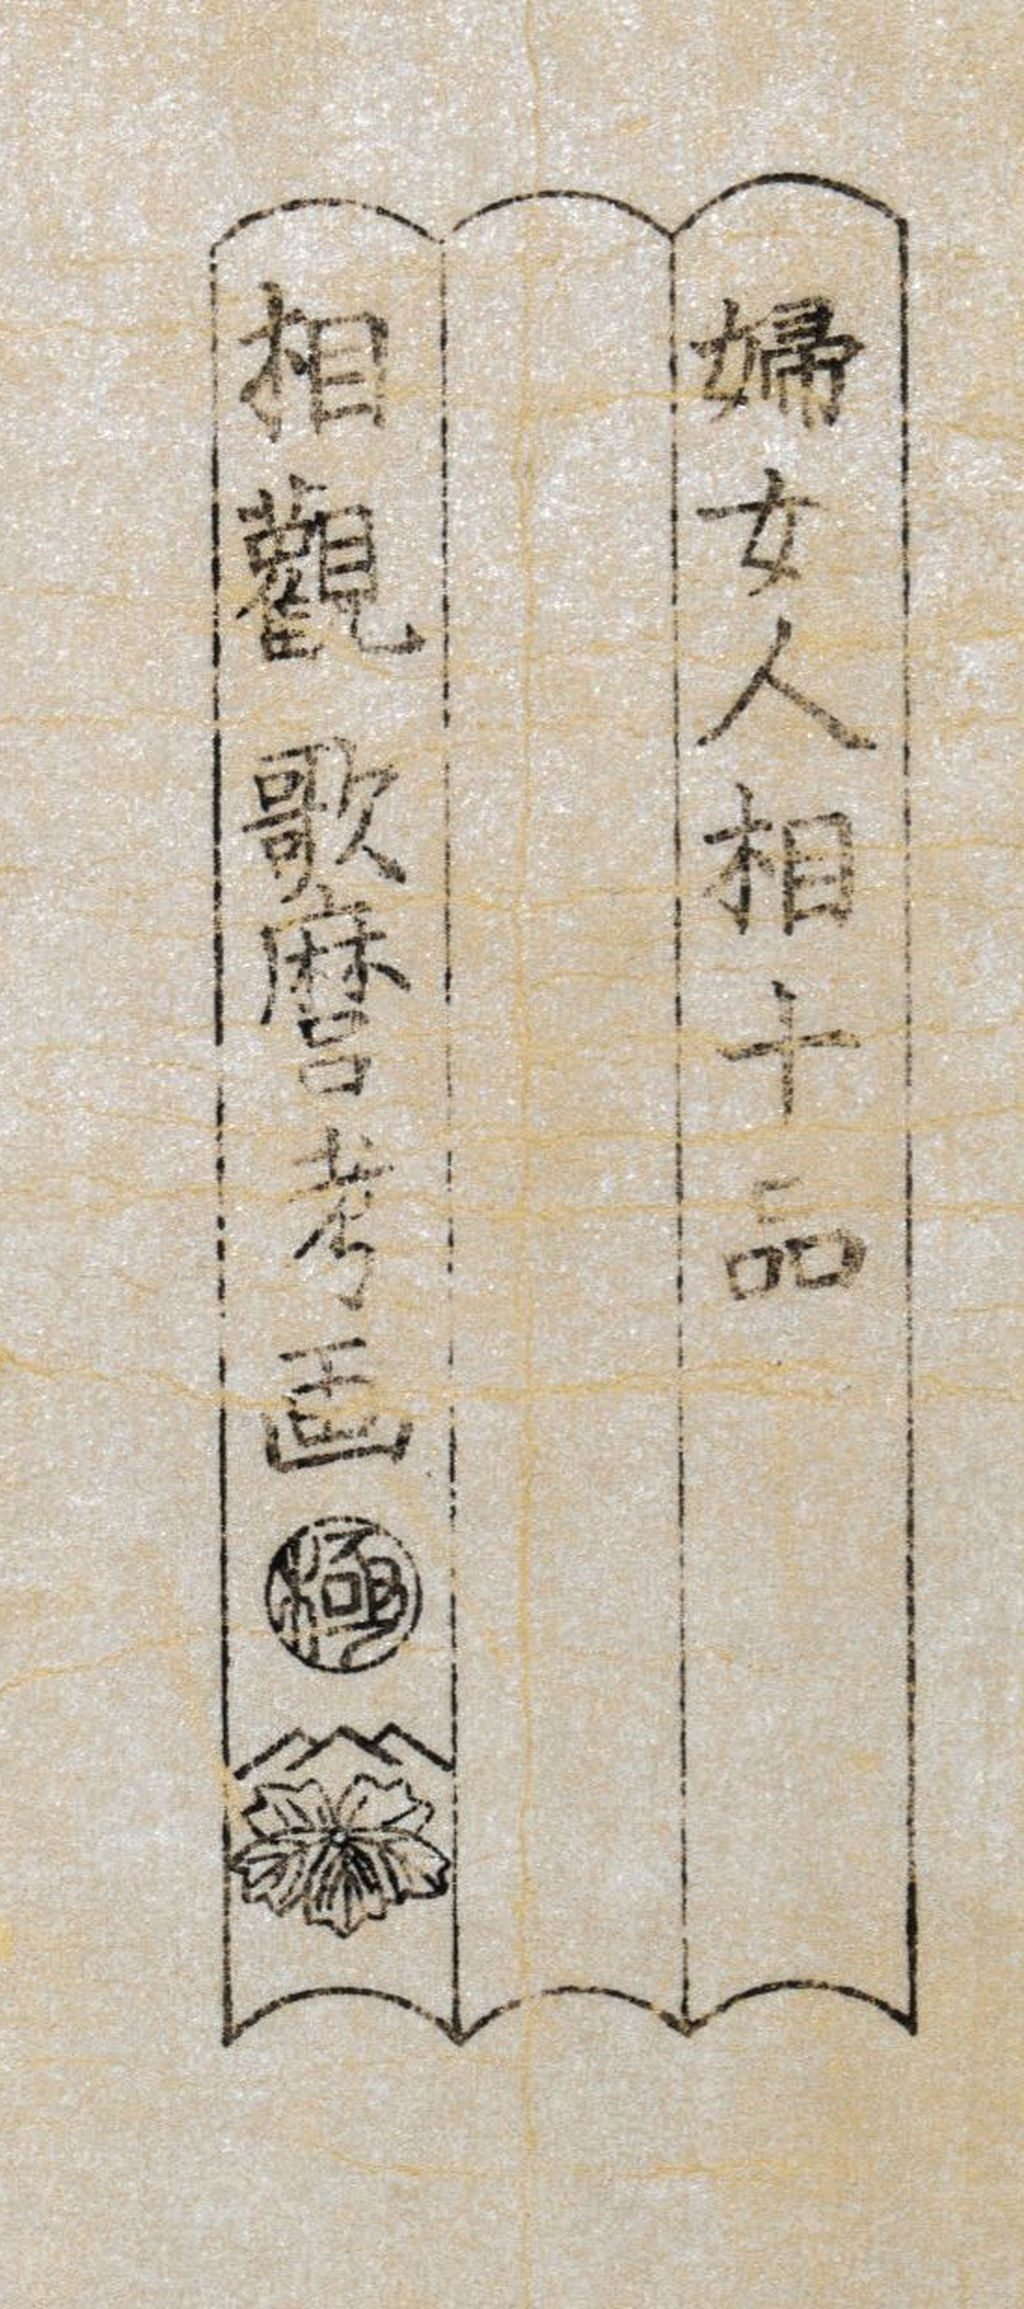 婦女人相十品
相觀
歌麿考画
極